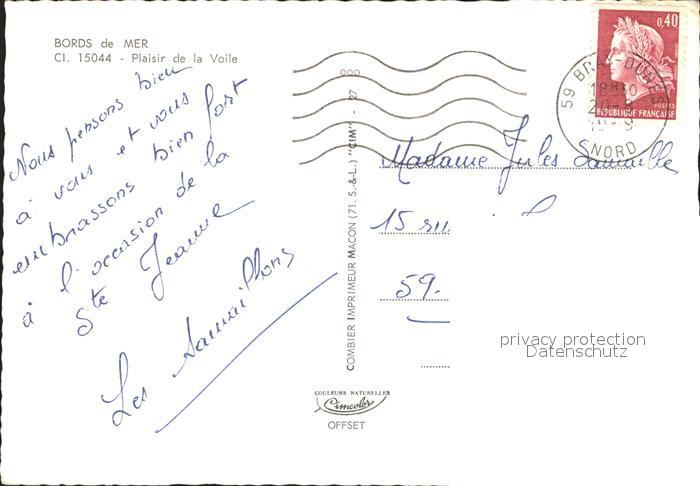 BORDS de MER
Cl. 15044 - Plaisir de la Voile
Nous pensons bien
à vous et vous
embrassons bien fort
à l'occasion de la
Ste Jeanne
Les
COMBIER IMPRIMEUR MACON (71. S.-&-L.) "CIM" - 27
COULEURS NATURELLES
Cimcolor
OFFSET
0,40
POSTES
REPUBLIQUE FRANÇAISE
59 BRAY-DUNES
18H30
NORD
Madame Jules
15 rue
59.
privacy protection
Datenschutz